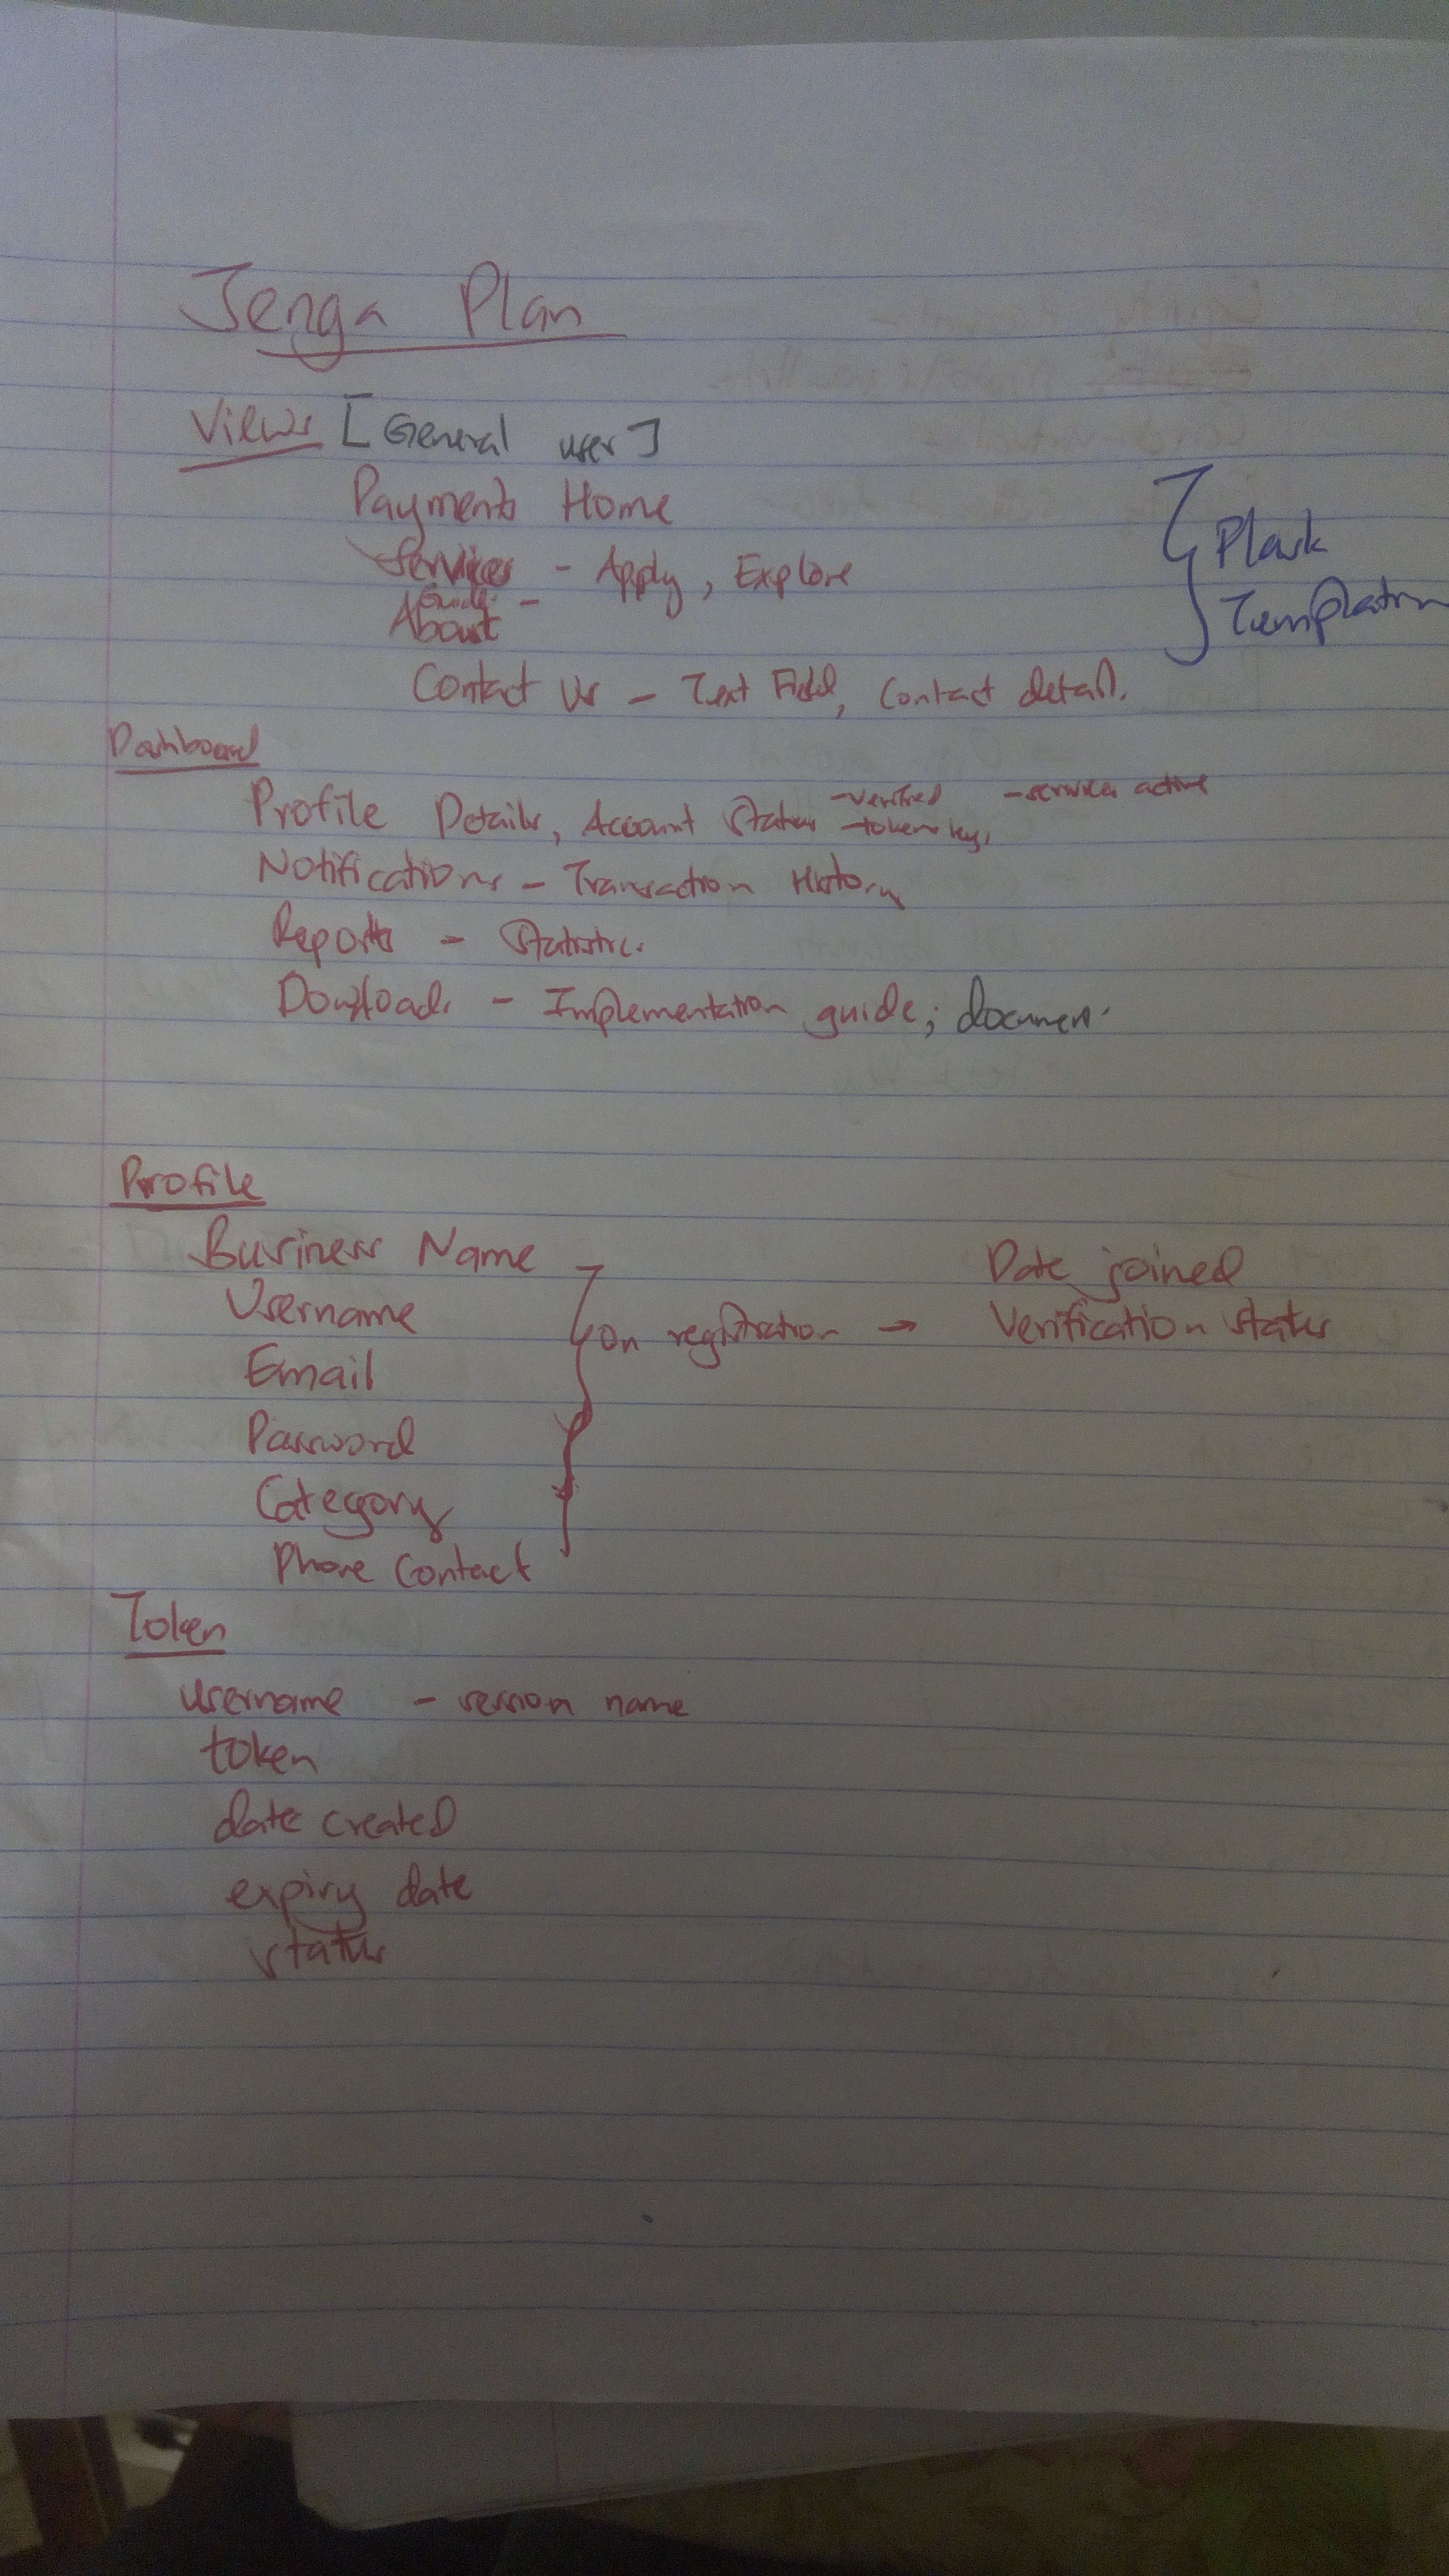 Jenga Plan
Views [General user]
Payments Home
Services - Apply, Explore
Guide -
About
Contact Us - Text Field, Contact details.
} Plask
Templation
Dashboard
Profile Details, Account Status -verified -services active
-tokens keys
Notifications - Transaction History
Reports - Statistics
Downloads - Implementation guide; documen.
Profile
Business Name
Username
Email
Password
Category
Phone Contact
} on registration → Date joined
Verification status
Token
username - session name
token
date created
expiry date
status